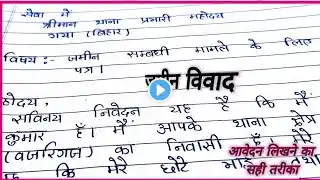 सेवा में
श्रीमान थाना प्रभारी महोदय
गया (बिहार)
विषय :- जमीन सम्बंधी मामले के लिए
पत्र।
जमीन विवाद
होदय,
सविनय निवेदन यह है कि मैं
कुमार हूँ। मैं आपके थाना क्षेत्र
(वजीरगंज) का निवासी हूँ। मेरे
कि मेरे छोटे
आवेदन लिखने का
सही तरीका